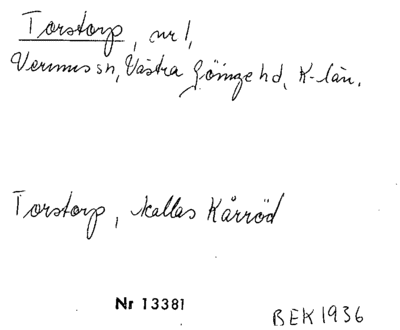 Torstorp, nr 1,
Verums sn, Västra Göinge hd, K-län.
Torstorp, kallas Kårröd
Nr 13381
BEK 1936